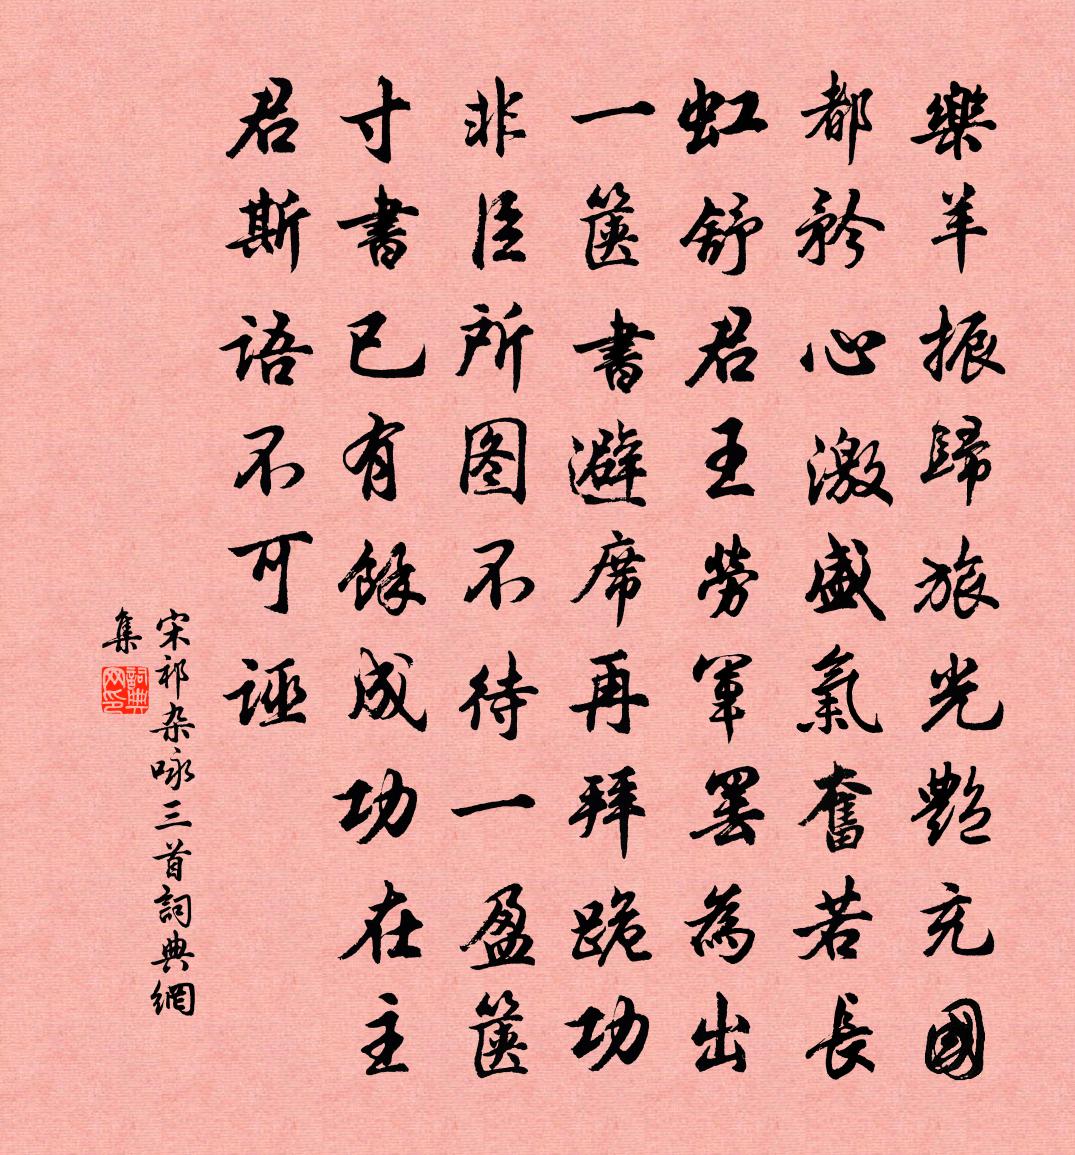 樂羊振歸旅光艷充國
都矜心激盛氣奮若長
虹舒君王勞軍罷為出
一篋書避席再拜跪功
非臣所图不待一盈篋
寸書已有餘成功在主
君斯語不可誣
宋祁杂咏三首詞典網
集
詞典
网印